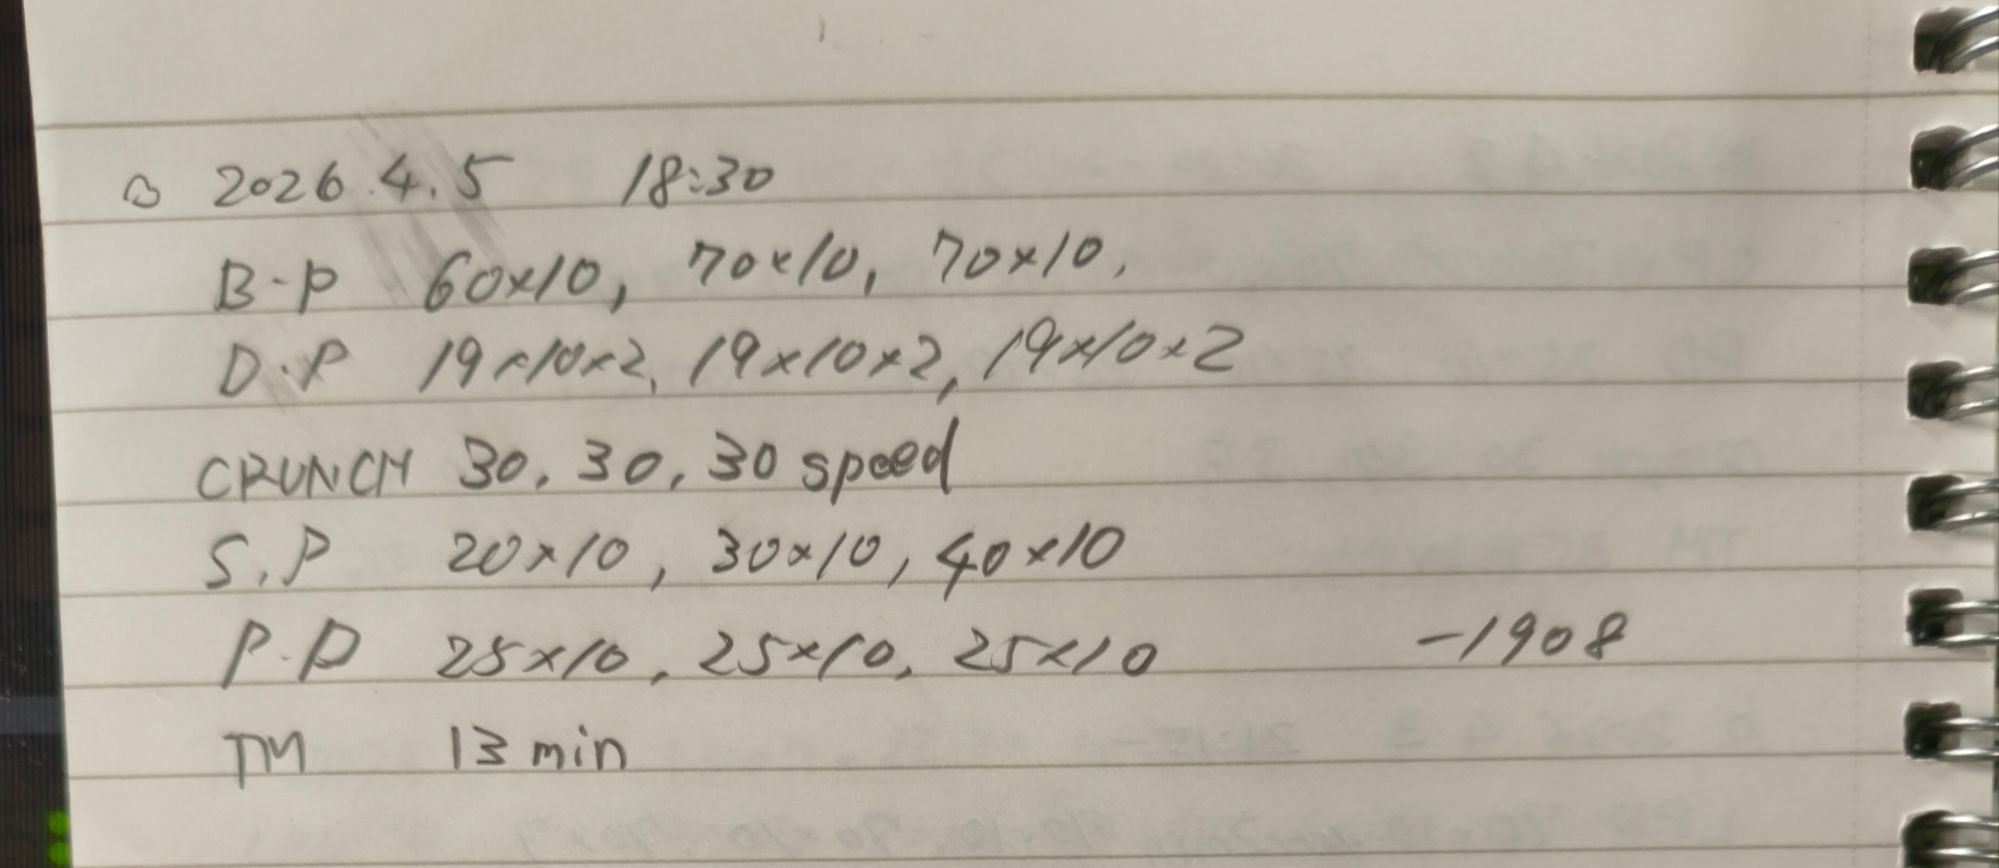 ○ 2026.4.5 18:30
B-P 60×10, 70×10, 70×10,
D.P 19×10×2, 19×10×2, 19×10×2
CRUNCH 30, 30, 30 speed
S.P 20×10, 30×10, 40×10
P.D 25×10, 25×10, 25×10 -1908
TM 13 min